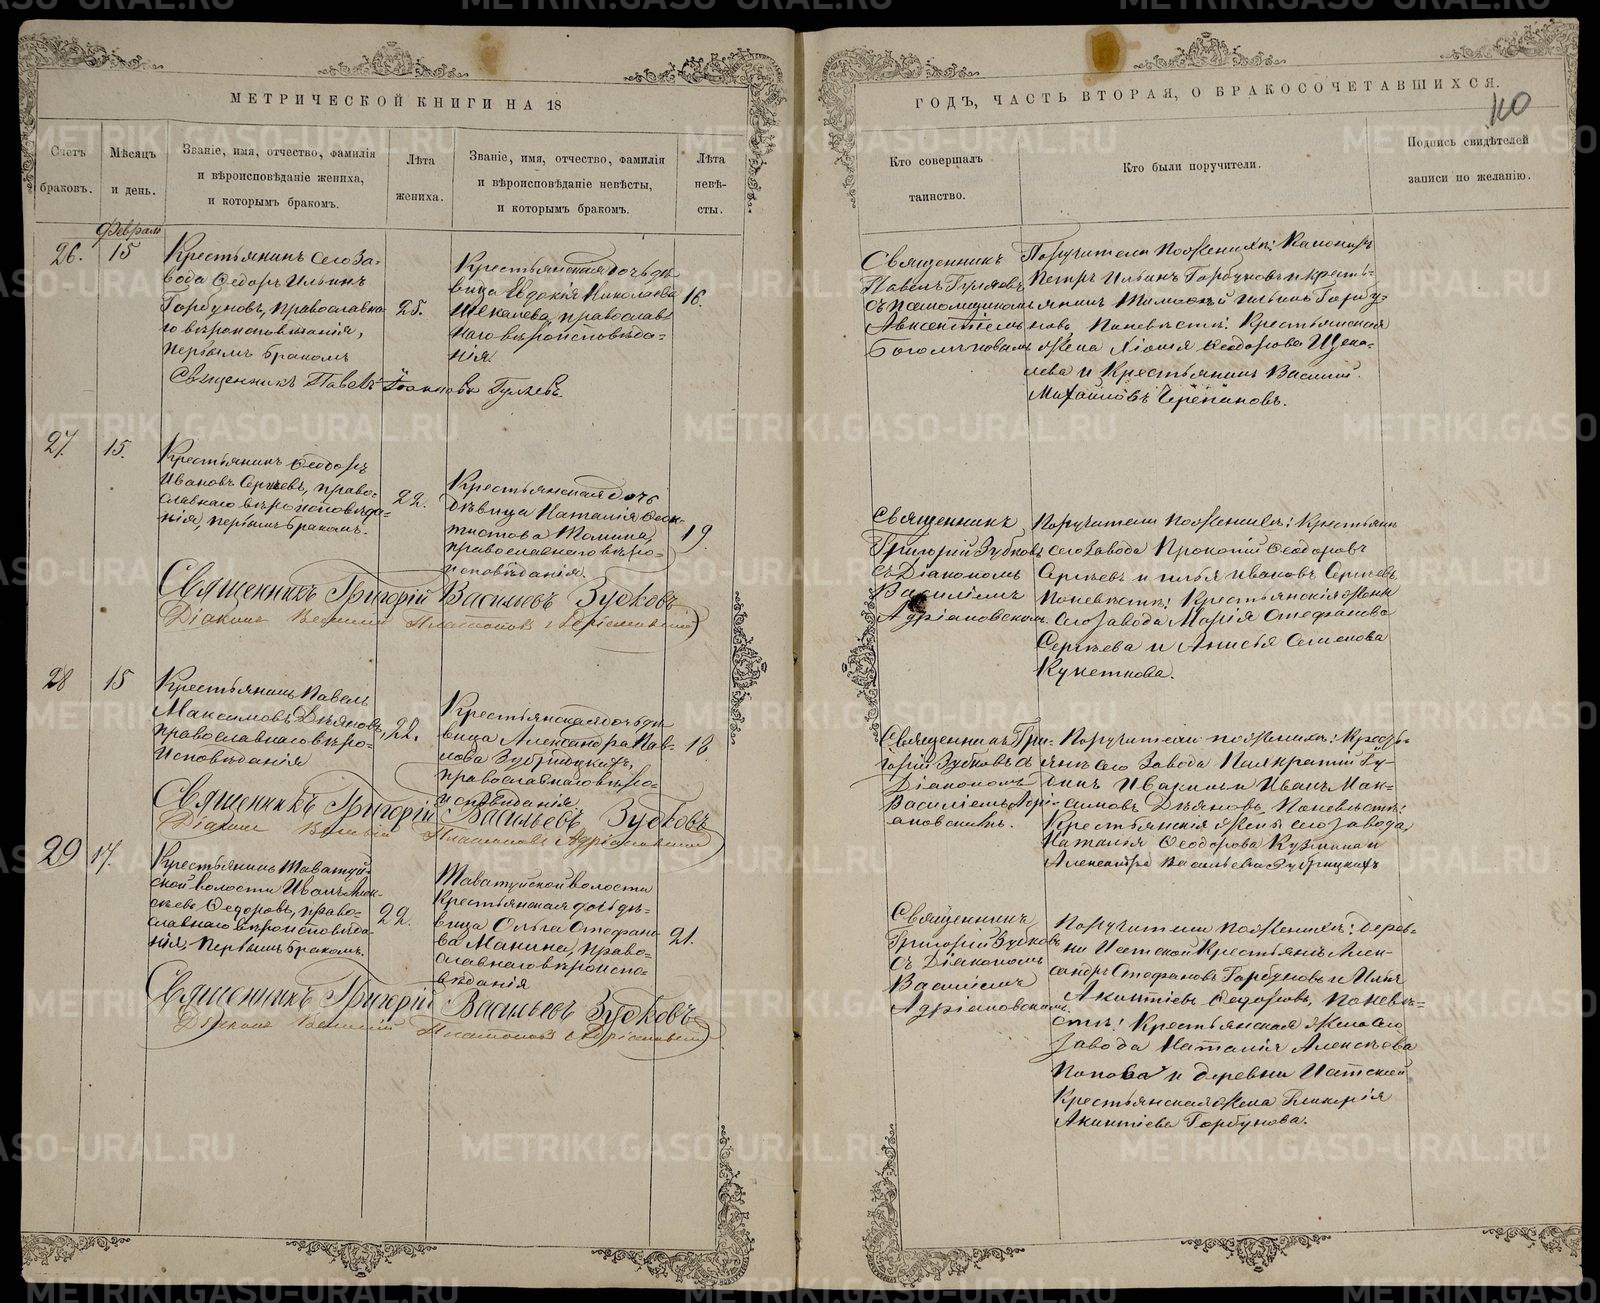 МЕТРИЧЕСКОЙ КНИГИ НА 18
Счетъ браковъ.
Мѣсяцъ и день.
Званіе, имя, отчество, фамилія
и вѣроисповѣданіе жениха,
и которымъ бракомъ.
Лѣта жениха.
Званіе, имя, отчество, фамилія
и вѣроисповѣданіе невѣсты,
и которымъ бракомъ.
Лѣта
невѣ-
сты.
Февраль
26.
15
Крестьянинъ сего за-
вода Ѳедоръ Ильинъ
Горбуновъ, православна-
го вѣроисповѣданія,
первымъ бракомъ
25.
Крестьянская дочь дѣ-
вица Евдокія Николаева
Щекалева, православ-
наго вѣроисповѣда-
нія
16.
Священникъ Павелъ Іоанновъ Гуляевъ
27.
15.
Крестьянинъ Ѳеодоръ
Ивановъ Сергѣевъ, право-
славнаго вѣроисповѣда-
нія, первымъ бракомъ.
22.
Крестьянская дочь
дѣвица Наталія
православнаго вѣро-
исповѣданія.
19.
Священникъ Григорій Васильевъ Зубковъ
Діаконъ Василій Платоновъ Адріановскій
28
15
Крестьянинъ Павелъ
Максимовъ Дѣяновъ,
православнаго вѣро-
исповѣданія
22.
Крестьянская дочь дѣ-
вица Александра Пав-
лова Зубрицкихъ,
православнаго вѣро-
исповѣданія
18
Священникъ Григорій Васильевъ Зубковъ
Діаконъ Василій Платоновъ Адріановскій
29
17.
Крестьянинъ Таватуй-
ской волости Иванъ Алек-
сѣевъ Ѳедоровъ, право-
славнаго вѣроисповѣда-
нія, первымъ бракомъ.
22.
Таватуйской волости
Крестьянская дочь дѣ-
вица Ольга Стефано-
ва Манина, право-
славнаго вѣроиспо-
вѣданія
21.
Священникъ Григорій Васильевъ Зубковъ
Діаконъ Василій Платоновъ Адріановскій
ГОДЪ, ЧАСТЬ ВТОРАЯ, О БРАКОСОЧЕТАВШИХСЯ.
110
Кто совершалъ
таинство.
Кто были поручители.
Подпись свидѣтелей
записи по желанію.
Священникъ
Павелъ Гуляевъ
съ псаломщикомъ
Авксентіемъ
Боголѣповымъ
Поручители по женихѣ:
Петръ Ильинъ Горбуновъ и кресть-
янинъ Тимофей Ильинъ Горбу-
новъ. По невѣстѣ: Крестьянская
жена Хіонія Ѳеодорова Щека-
лева и Крестьянинъ Василій
Михайловъ Черепановъ.
Священникъ
Григорій Зубковъ
съ Діакономъ
Василіемъ
Адріановскимъ.
Поручители по женихѣ: Крестьяне
сего завода Прокопій Ѳеодоровъ
Сергѣевъ и Илья Ивановъ Сергѣевъ.
По невѣстѣ: Крестьянскія жены
сего завода Марія Стефанова
Сергѣева и Анисья Семенова
Священникъ Гри-
горій Зубковъ съ
Діакономъ
Василіемъ Адрі-
ановскимъ.
Поручители по женихѣ: Кресть-
яне сего завода Панкратій
и Иванъ Мак-
симовъ Дѣяновъ, По невѣстѣ:
Крестьянскія жены сего завода,
Наталья Ѳеодорова Кузькина и
Александра Васильева Зубрицкихъ
Священникъ
Григорій Зубковъ
съ Діакономъ
Василіемъ
Адріановскимъ.
Поручители по женихѣ: дерев-
ни Исетской Крестьяне Алек-
сандръ Стефановъ Горбуновъ и Илья
Акинтіевъ Ѳедоровъ, По невѣ-
стѣ: Крестьянская жена сего
завода Наталія Алексѣева
Попова и деревни Исетской
Крестьянская жена Гликерія
Акинтіева Горбунова.
METRIKI.GASO-URAL.RU